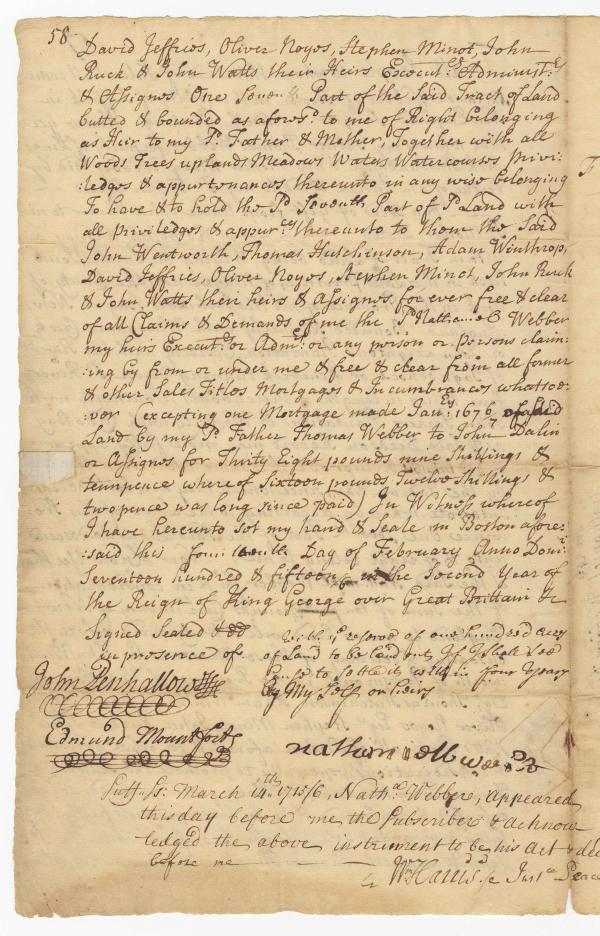 58
David Jeffries, Oliver Noyes, Stephen Minot, John
Ruck & John Watts their Heirs Execut.rs Administ.rs
& Assignes One Seventh Part of the Said Tract of Land
butted & bounded as afores.d to me of Right belonging
as Heir to my s.d Father & Mother, Together with all
Woods Trees uplands Meadows Waters Watercourses Privi:
:ledges & appurtenances thereunto in any wise belonging
To have & to hold the s.d Seventh Part of s.d Land with
all priviledges & appur.ces thereunto to them the Said
John Wentworth, Thomas Hutchinson, Adam Winthrop,
David Jeffries, Oliver Noyes, Stephen Minot, John Ruck
& John Watts their heirs & Assignes for ever free & clear
of all Claims & Demands of me the s.d Nathaniel Webber
my heirs Execut.rs or Adm.rs or any person or persons claim:
:ing by from or under me & free & clear from all former
& other Sales Titles Mortgages & Incumbrances whatsoe:
:ver (excepting one Mortgage made Jan.ry 1676 of said
Land by my s.d Father Thomas Webber to John Dalin
or Assignes for Thirty Eight pounds nine Shillings &
tennpence whereof Sixteen pounds Twelve Shillings &
twopence was long since paid) In Witness whereof
I have hereunto set my hand & Seale in Boston afore:
:said this fourteenth Day of February Anno Dom.i
Seventeen hundred & fifteen/6 in the Second Year of
the Reign of King George over Great Brittain &c
Signed Sealed & dd
in presence of
with y.e reserve of one hundred acers
of Land to be land out If I Shall See
Cause to Settle it with in four Years
By My Self or heirs
John Penhallow
Edmund Mountfort
nathaniell webber
Suff. ss: March 14.th 1715/6, Nath.el Webber, appeared
this day before me the Subscriber & acknow
ledged the above instrument to be his act &
before me
W.m Harris Just.ce Peace